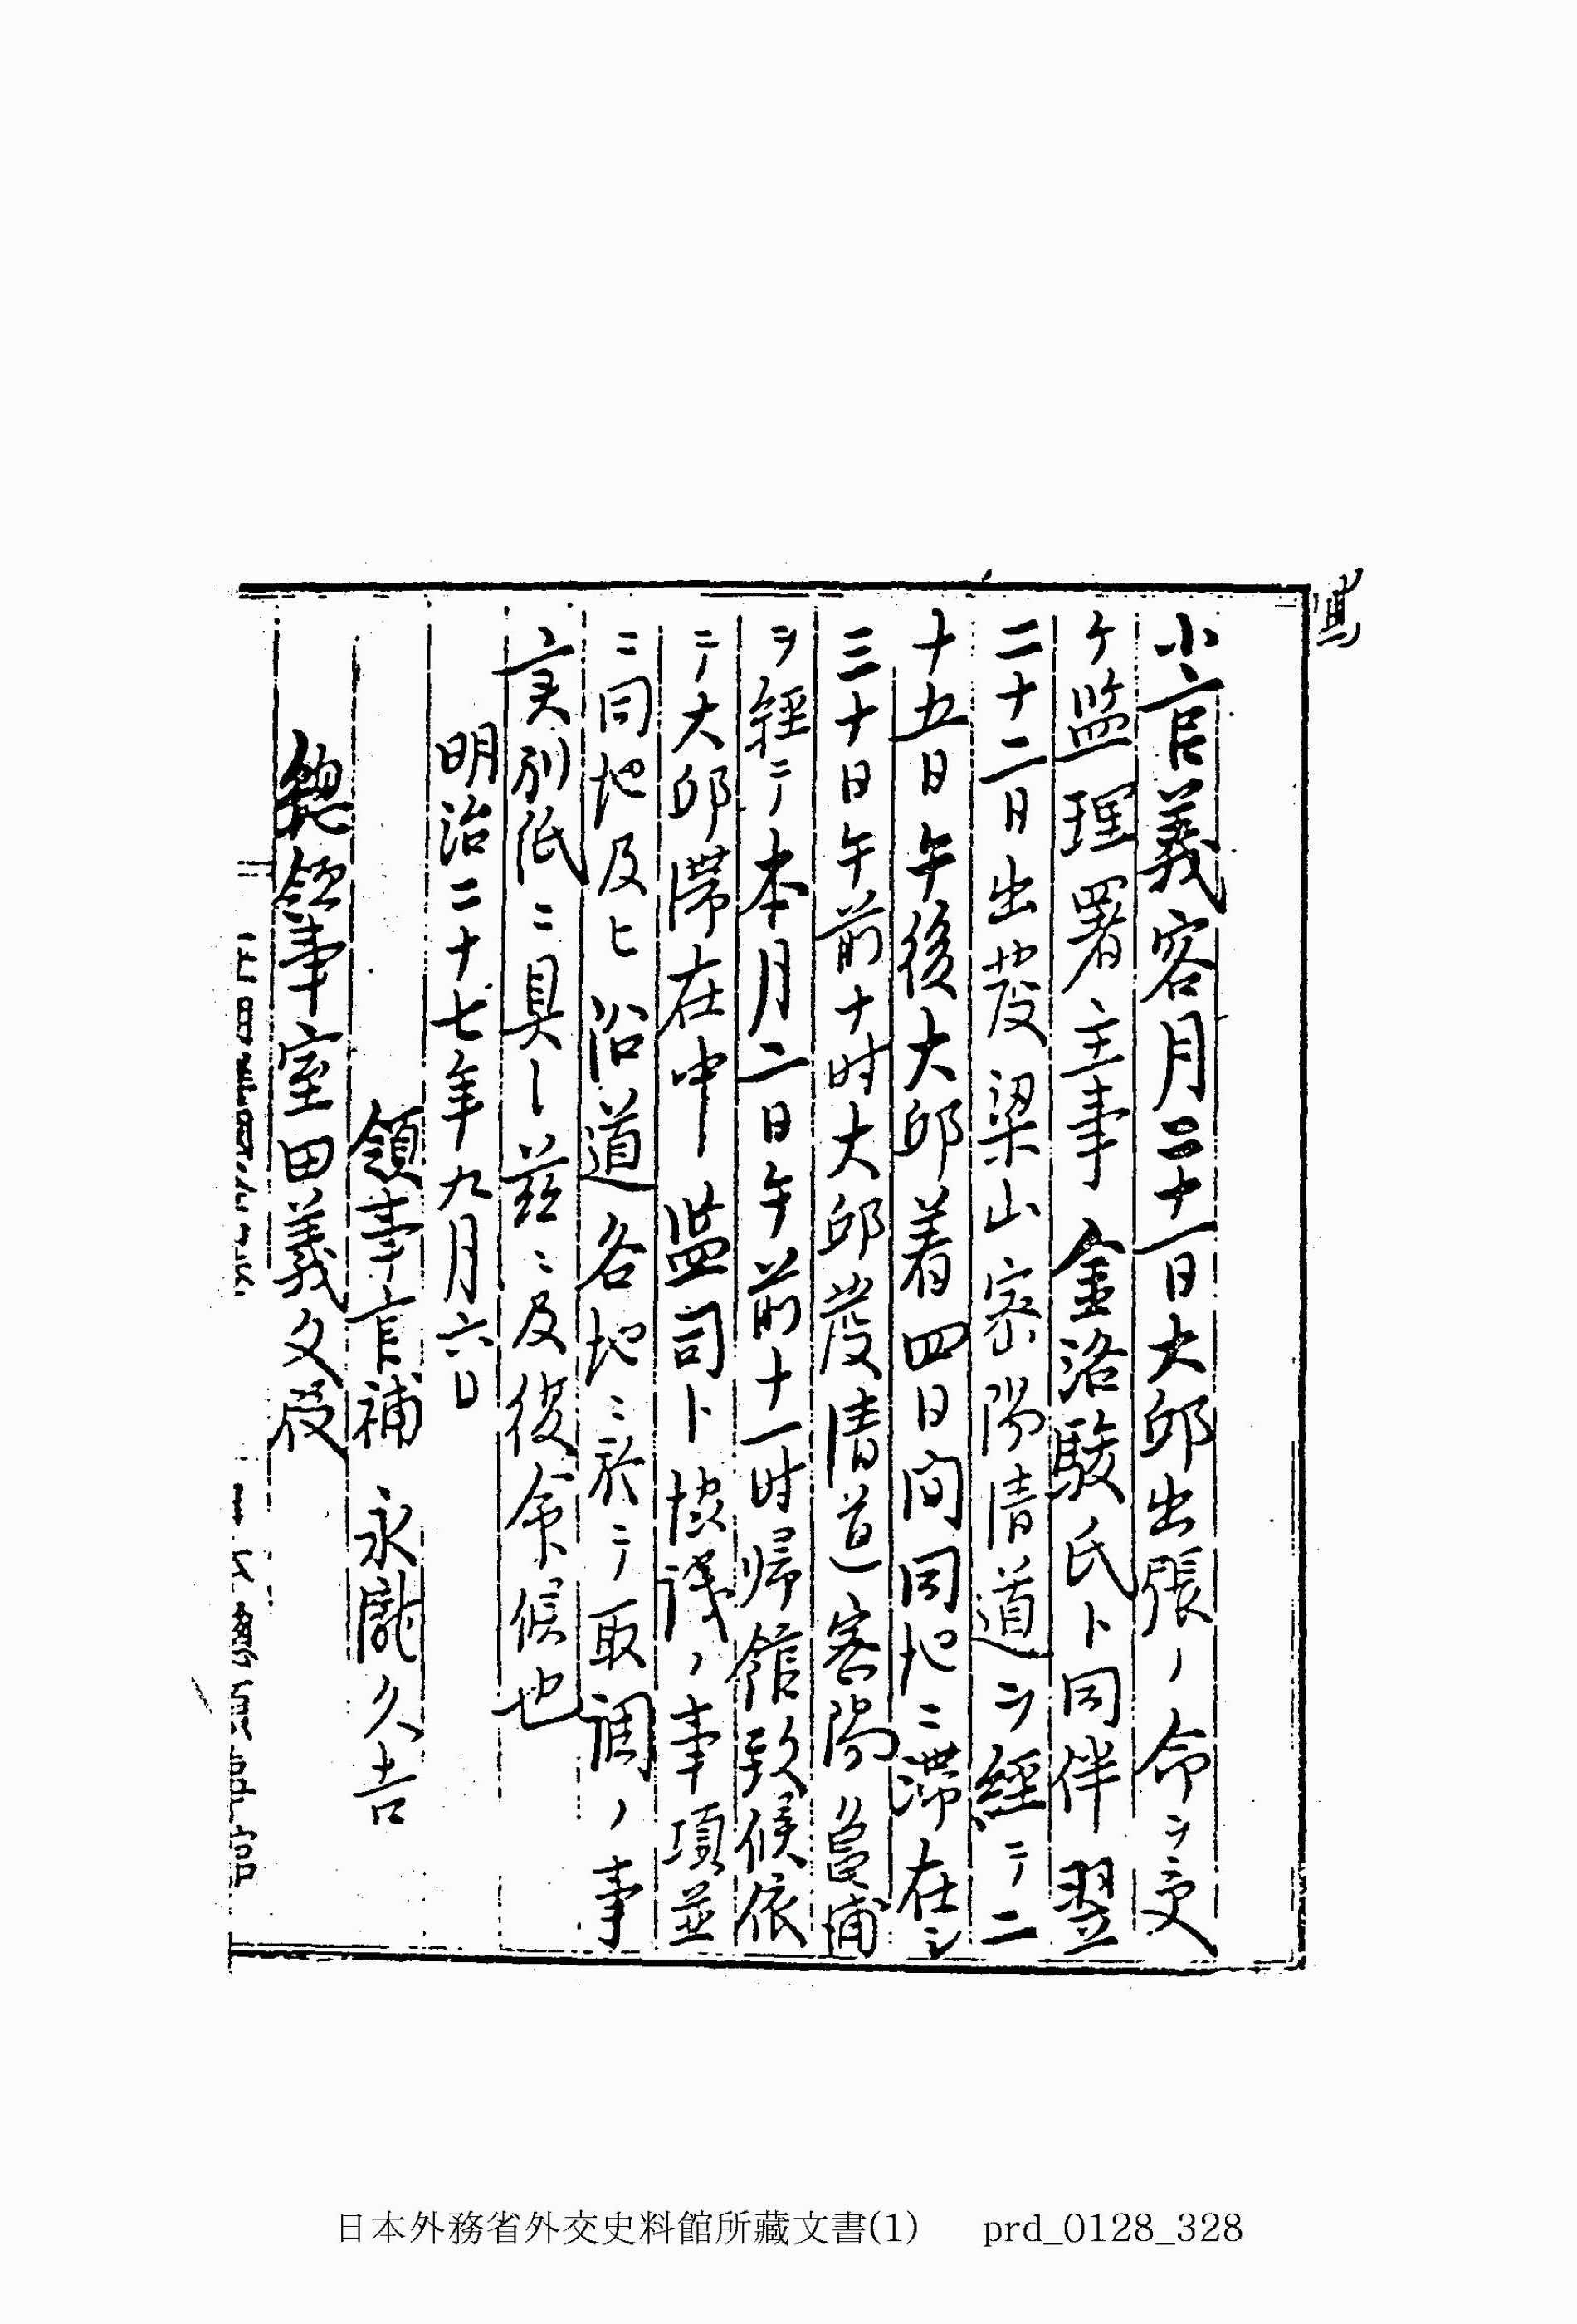 写
小官義客月二十一日大邱出張ノ命ヲ受
ケ監理署主事金洛駿氏ト同伴翌
二十二日出発梁山密陽清道ヲ経テ二
十五日午後大邱着四日間同地ニ滞在シ
三十日午前十时大邱発清道密陽亀浦
ヲ経テ本月二日午前十一时帰館致候依
テ大邱滞在中監司ト協議ノ事項並
ニ同地及ヒ沿道各地ニ於テ取調ノ事
実別紙ニ具シ茲ニ及復命候也
明治二十七年九月六日
領事官補 永瀧久吉
総領事室田義文殿
日本外務省外交史料館所藏文書(1) prd_0128_328